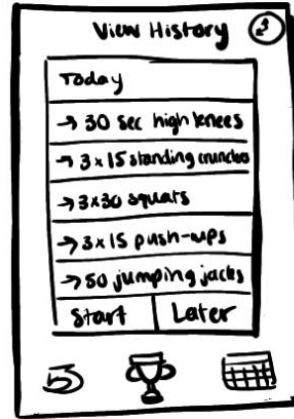 View History
Today
→ 30 sec high knees
→ 3x15 standing crunches
→ 3x30 squats
→ 3x15 push-ups
→ 50 jumping jacks
Start Later